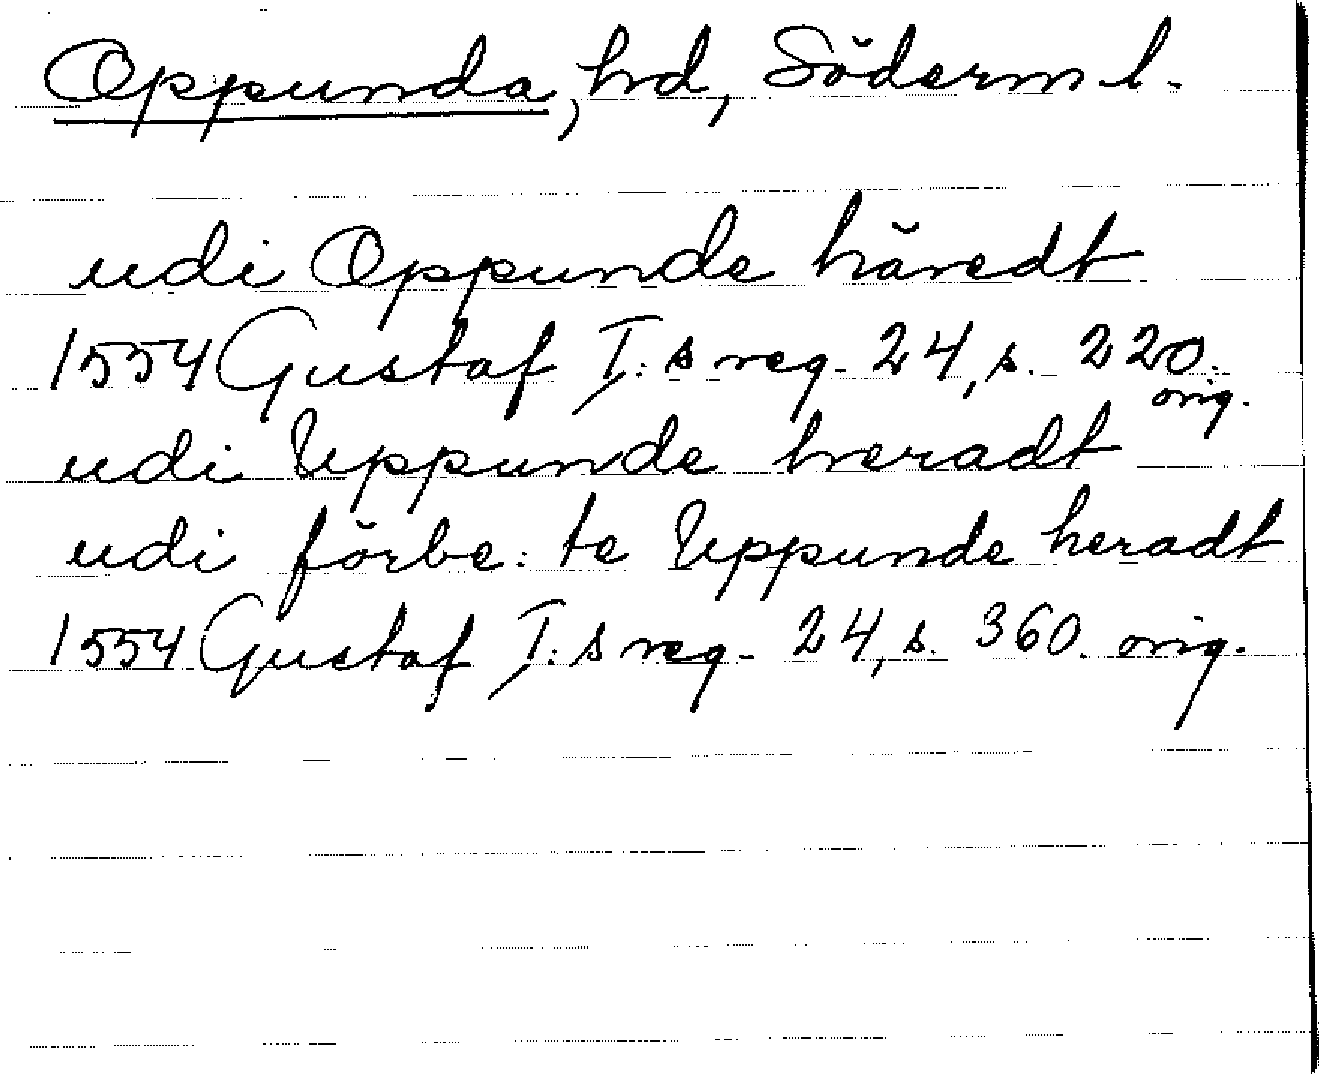 Oppunda, hd, Söderml.
udi Oppunde häredt
1554 Gustaf I:s reg. 24, s. 220.
orig.
udi Uppunde heradt
udi förbe:te Uppunde heradt
1554 Gustaf I:s reg. 24, s. 360. orig.